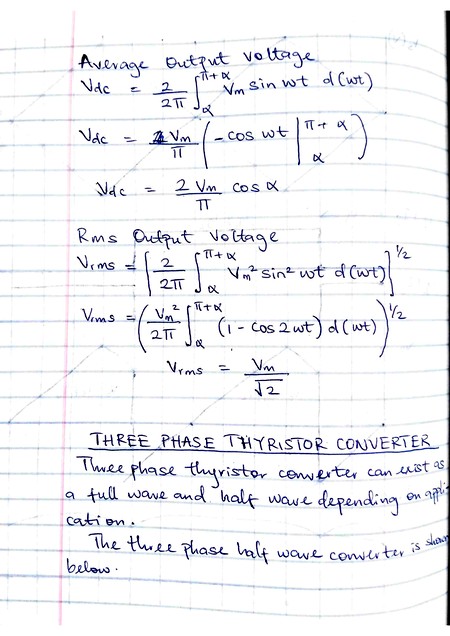 Average Output Voltage
Vdc = 2/2π ∫_α^{π+α} Vm sin wt d(wt)
Vdc = Vm/π (-cos wt |_α^{π+α})
Vdc = 2Vm/π cos α
Rms Output Voltage
Vrms = [2/2π ∫_α^{π+α} Vm² sin² wt d(wt)]^{1/2}
Vrms = (Vm²/2π ∫_α^{π+α} (1 - cos 2wt) d(wt))^{1/2}
Vrms = Vm/√2
THREE PHASE THYRISTOR CONVERTER
Three phase thyristor converter can exist as
a full wave and half wave depending on appli-
cation.
The three phase half wave converter is shown
below.